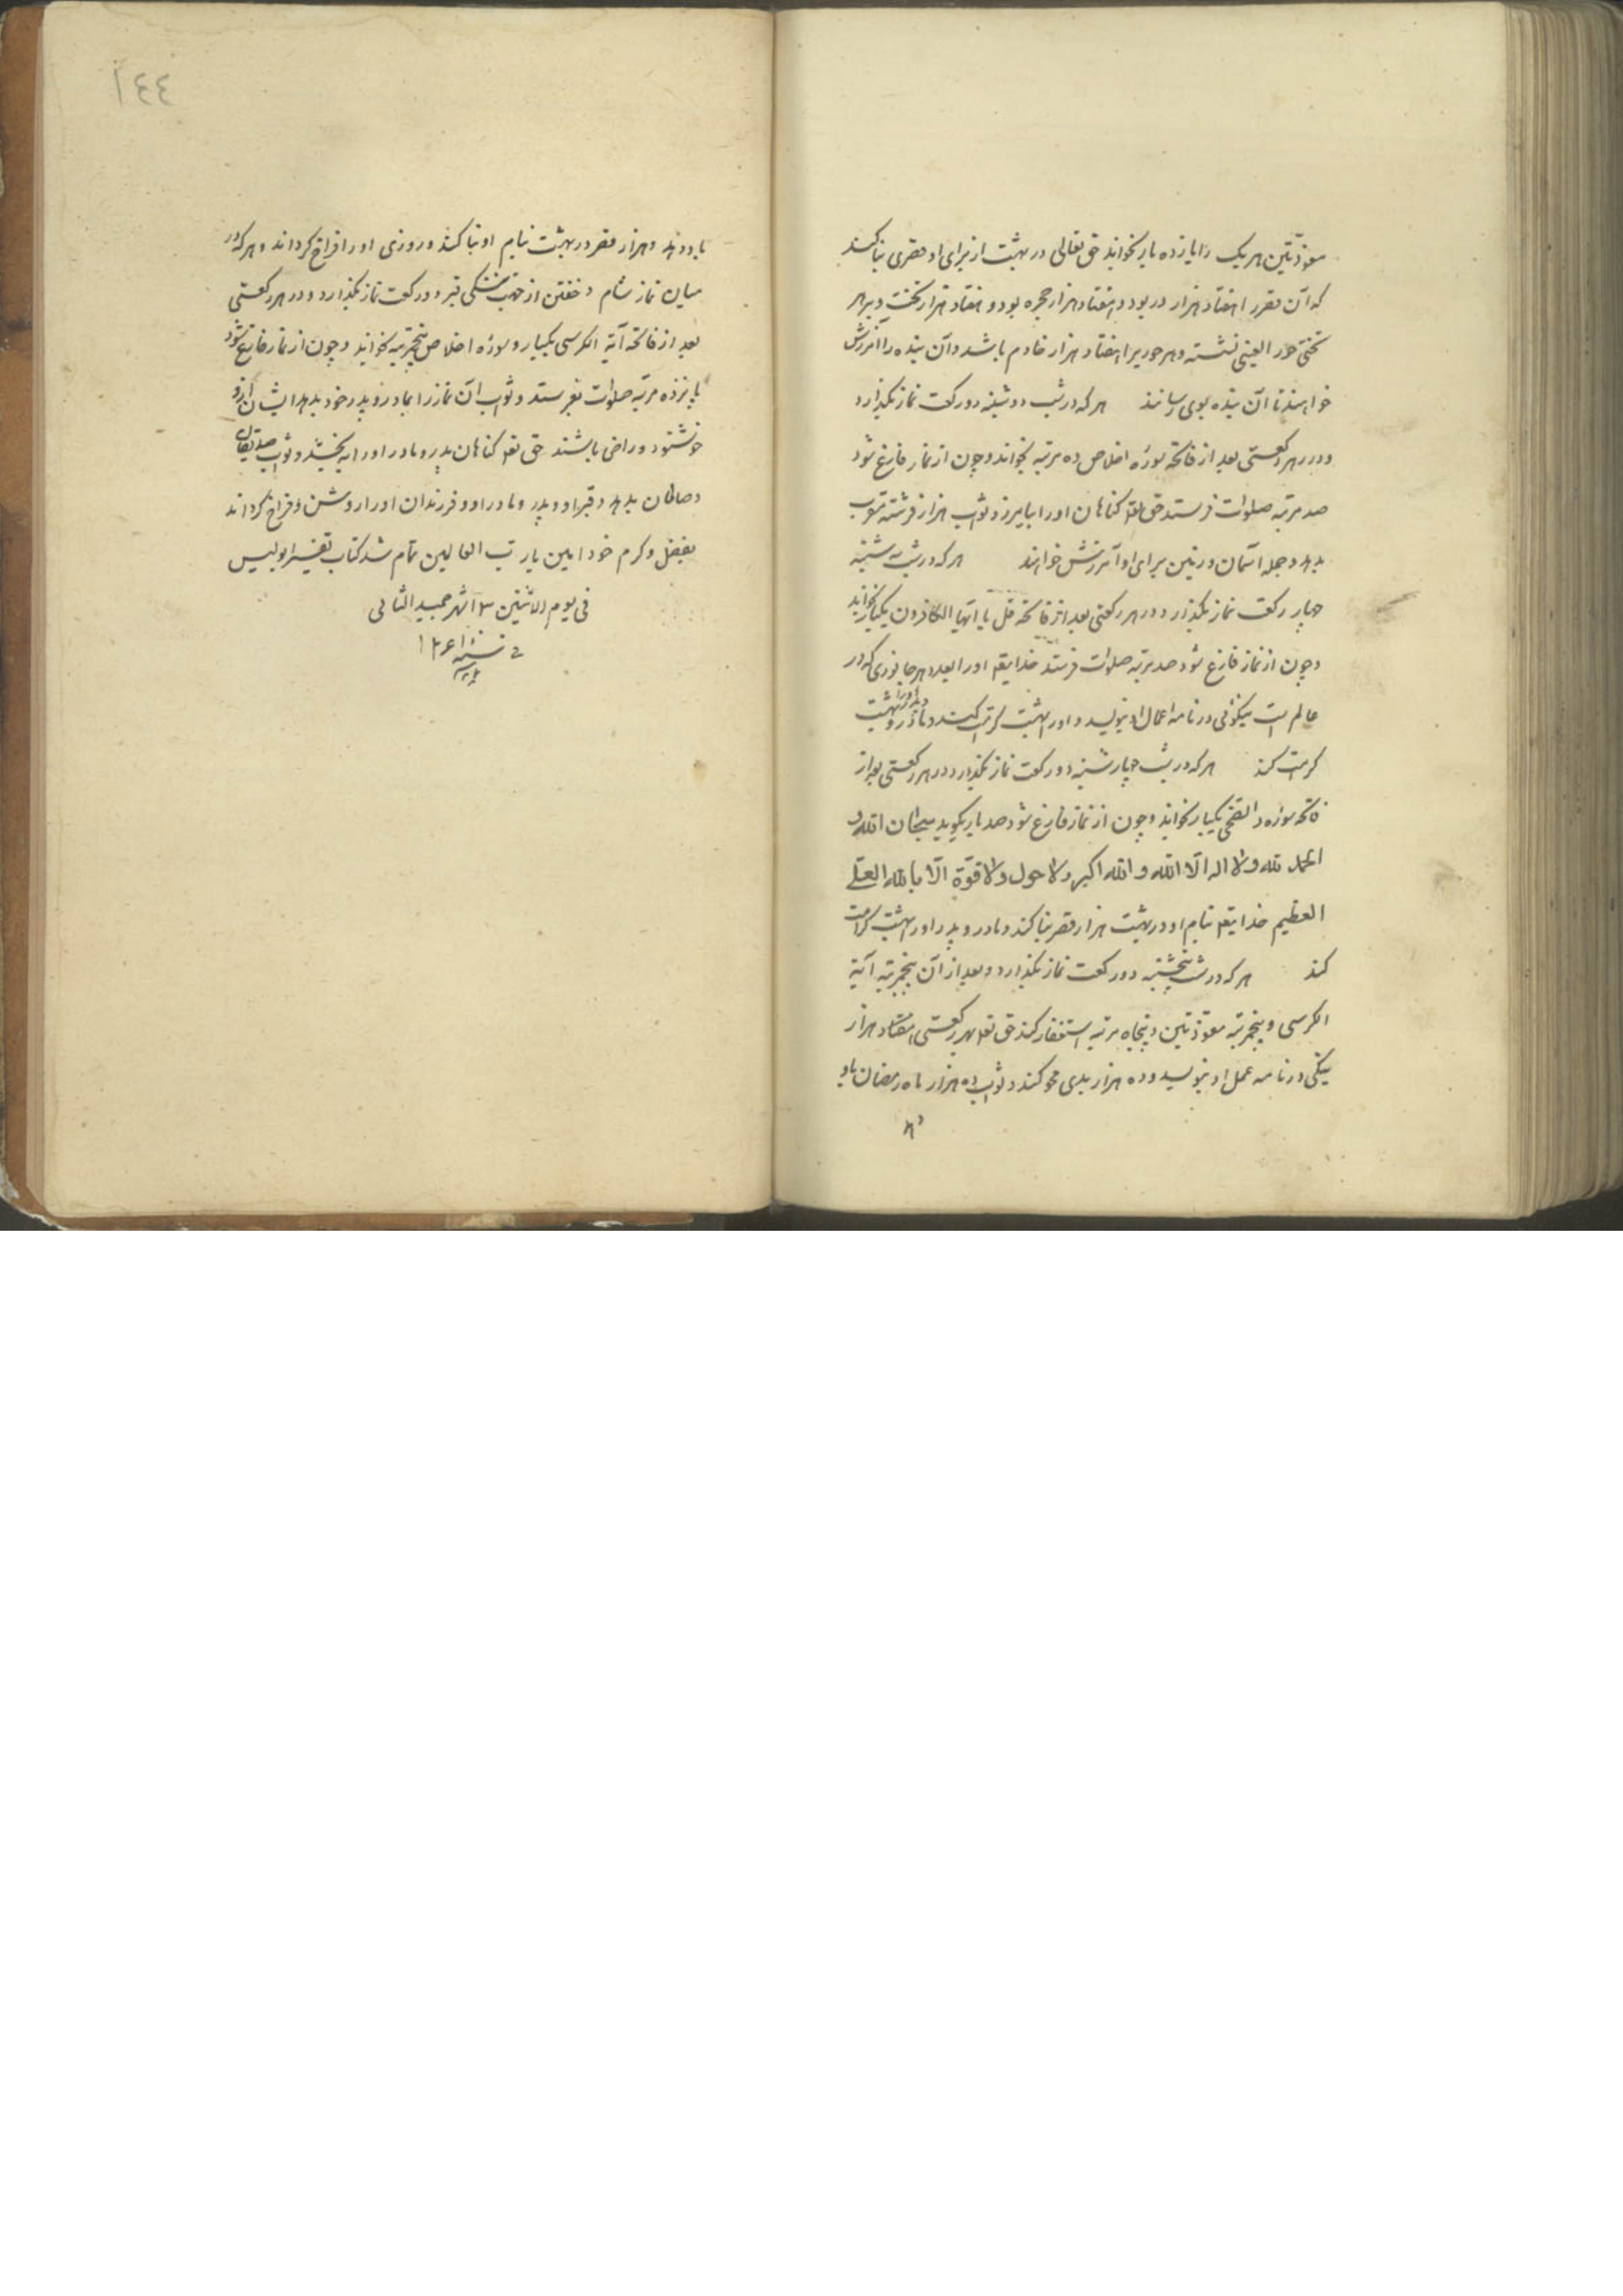 معوذتین هر یک را یازده بار بخواند حق تعالی در بهشت از برای او قصری بنا کند
که آن قصر را هفتاد هزار در بود و هفتاد هزار حجره بود و هفتاد هزار تخت و بر هر
تختی حور العینی نشسته و هر حوریرا هفتاد هزار خادم باشد و آن بنده را آمرزش
خواهند تا آن بنده بوی رسانند هر که در شب دوشنبه دو رکعت نماز بگذارد
و در هر رکعتی بعد از فاتحه سوره اخلاص ده مرتبه بخواند و چون از نماز فارغ شود
صد مرتبه صلوات فرستد حق تعا کناهان اورا بیامرزد و ثواب هزار فرشته مقرب
بدهد و جمله آسمان و زمین برای او آمرزش خواهند هر که در شب سه شنبه
چهار رکعت نماز بگذارد و در هر رکعتی بعد از فاتحه قل یا ایها الکافرون یکبار بخواند
و چون از نماز فارغ شود صد مرتبه صلوات فرستد خدایتعا اورا بعدد هر جانوری که در
عالم است نیکوئی در نامه اعمال او بنویسد و اورا بهشت کرامت کند و مادر و پدر اورا بهشت
کرامت کند هر که در شب چهارشنبه دو رکعت نماز بگذارد و در هر رکعتی بعد از
فاتحه سوره والضحی یکبار بخواند و چون از نماز فارغ شود صد بار بگوید سبحان الله و
الحمد لله و لا اله الا الله و الله اکبر و لا حول و لا قوة الا بالله العلی
العظیم خدایتعا بنام او در بهشت هزار قصر بنا کند و مادر و پدر اورا بهشت کرامت
کند هر که در شب پنجشنبه دو رکعت نماز بگذارد و بعد از آن پنجمرتبه آیة
الکرسی و پنجمرتبه معوذتین و پنجاه مرتبه استغفار کند حق تعا بهر رکعتی هفتاد هزار
نیکی در نامه عمل او بنویسد و ده هزار بدی محو کند و ثواب ده هزار ماه رمضان باو
١٤٤
باو دهد و هزار قصر در بهشت بنام او بنا کند و روزی اورا فراخ کرداند و هر که در
میان نماز شام و خفتن از جهت تنگی قبر دو رکعت نماز بگذارد و در هر رکعتی
بعد از فاتحه آیة الکرسی یکبار و سوره اخلاص پنجمرتبه بخواند و چون از نماز فارغ شود
پانزده مرتبه صلوات بفرستد و ثواب آن نماز را بمادر و پدر خود بدهد ایشان از او
خوشنود و راضی باشند حق تعا کناهان پدر و مادر اورا به بخشد و ثواب صدیقان
و صالحان بدهد و قبر او و پدر و مادر او و فرزندان اورا روشن و فراخ کرداند
بفضل و کرم خود امین یا رب العالمین تمام شد کتاب تفسیر ابولیس
فی یوم الاثنین ۳ شهر جمید الثانی